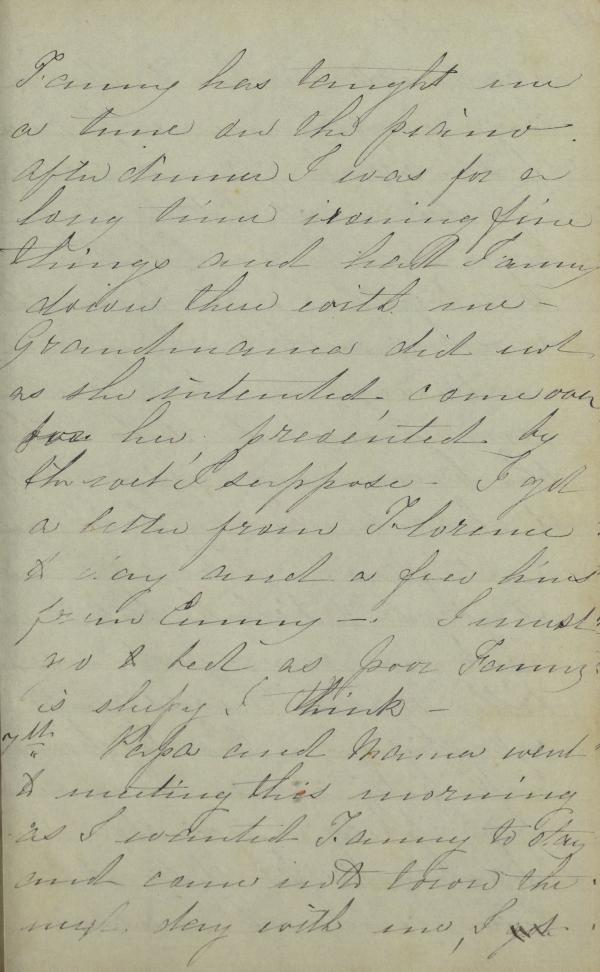 Fanny has taught me
a tune on the piano.
After dinner I was for a
long time ironing fine
things and had Fanny
down there with me -
Grandmama did not
as she intended come over
for her, presented by
the wet I suppose - I got
a letter from Florence
to day and a few lines
from Emmy -. I must
go to bed as poor Fanny
is sleepy I think -
7th Papa and Mama went
to meeting this morning
as I wanted Fanny to stay
and came into town the
next day with me, I